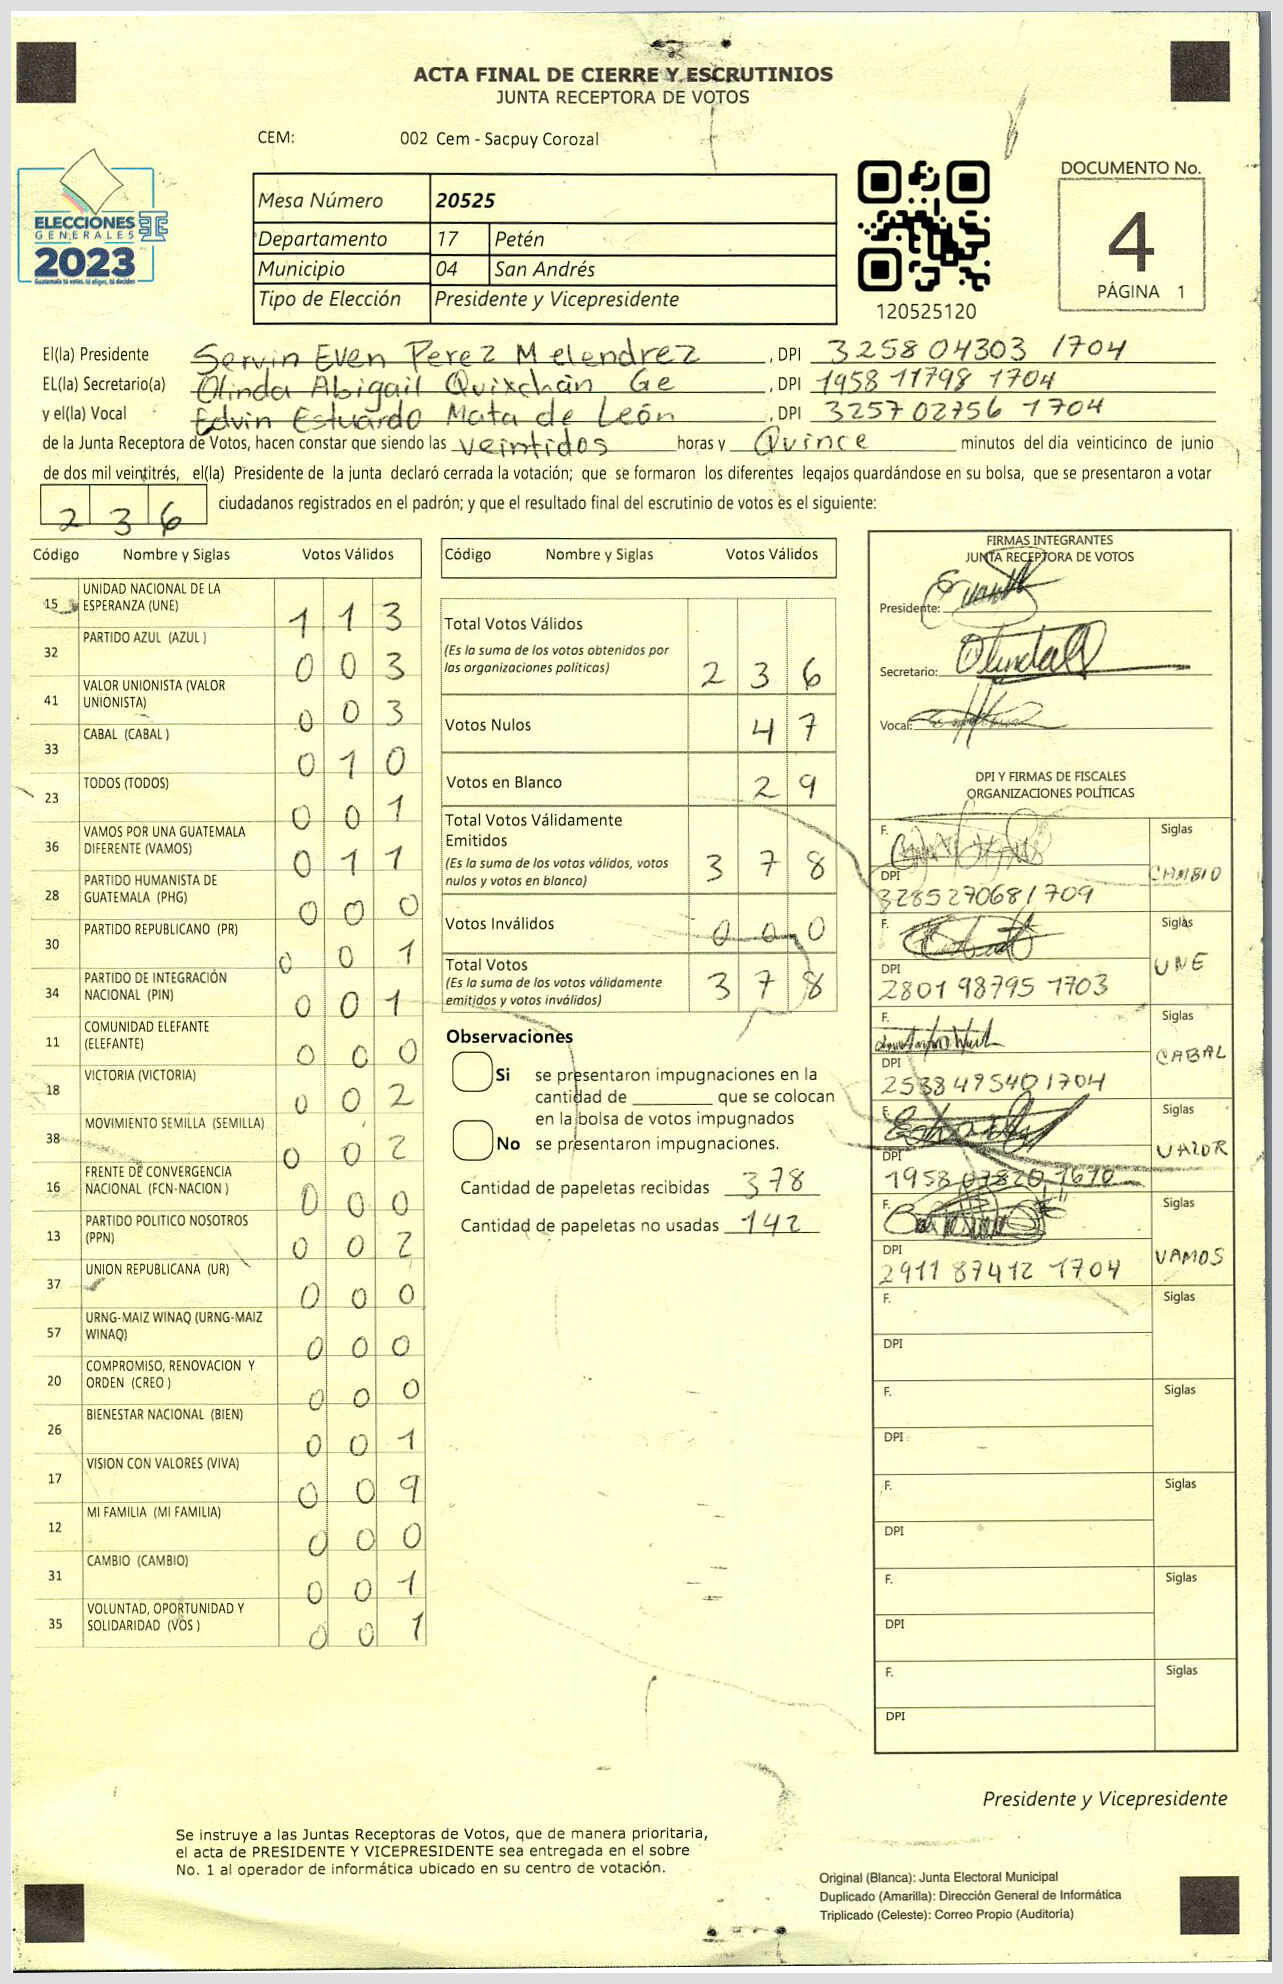 ACTA FINAL DE CIERRE Y ESCRUTINIOS
JUNTA RECEPTORA DE VOTOS
CEM: 002 Cem - Sacpuy Corozal
DOCUMENTO No.
4
PÁGINA 1
ELECCIONES
GENERALES
2023
Guatemala tú votas, tú eliges, tú decides
Mesa Número 20525
Departamento 17 Petén
Municipio 04 San Andrés
Tipo de Elección Presidente y Vicepresidente
120525120
El(la) Presidente Servin Even Perez Melendrez , DPI 3258 04303 1704
EL(la) Secretario(a) Olinda Abigail Quixchán Ge , DPI 1958 11798 1704
y el(la) Vocal Edvin Estuardo Mata de León , DPI 3257 02756 1704
de la Junta Receptora de Votos, hacen constar que siendo las veintidos horas y Quince minutos del día veinticinco de junio
de dos mil veintitrés, el(la) Presidente de la junta declaró cerrada la votación; que se formaron los diferentes legajos guardándose en su bolsa, que se presentaron a votar
236 ciudadanos registrados en el padrón; y que el resultado final del escrutinio de votos es el siguiente:
Código Nombre y Siglas Votos Válidos
15 UNIDAD NACIONAL DE LA ESPERANZA (UNE) 1 1 3
32 PARTIDO AZUL (AZUL ) 0 0 3
41 VALOR UNIONISTA (VALOR UNIONISTA) 0 0 3
33 CABAL (CABAL ) 0 1 0
23 TODOS (TODOS) 0 0 1
36 VAMOS POR UNA GUATEMALA DIFERENTE (VAMOS) 0 1 1
28 PARTIDO HUMANISTA DE GUATEMALA (PHG) 0 0 0
30 PARTIDO REPUBLICANO (PR) 0 0 1
34 PARTIDO DE INTEGRACIÓN NACIONAL (PIN) 0 0 1
11 COMUNIDAD ELEFANTE (ELEFANTE) 0 0 0
18 VICTORIA (VICTORIA) 0 0 2
38 MOVIMIENTO SEMILLA (SEMILLA) 0 0 2
16 FRENTE DE CONVERGENCIA NACIONAL (FCN-NACION ) 0 0 0
13 PARTIDO POLITICO NOSOTROS (PPN) 0 0 2
37 UNION REPUBLICANA (UR) 0 0 0
57 URNG-MAIZ WINAQ (URNG-MAIZ WINAQ) 0 0 0
20 COMPROMISO, RENOVACION Y ORDEN (CREO ) 0 0 0
26 BIENESTAR NACIONAL (BIEN) 0 0 1
17 VISION CON VALORES (VIVA) 0 0 9
12 MI FAMILIA (MI FAMILIA) 0 0 0
31 CAMBIO (CAMBIO) 0 0 1
35 VOLUNTAD, OPORTUNIDAD Y SOLIDARIDAD (VOS ) 0 0 1
Código Nombre y Siglas Votos Válidos
Total Votos Válidos 2 3 6
(Es la suma de los votos obtenidos por
las organizaciones políticas)
Votos Nulos 4 7
Votos en Blanco 2 9
Total Votos Válidamente
Emitidos 3 7 8
(Es la suma de los votos válidos, votos
nulos y votos en blanco)
Votos Inválidos 0 0 0
Total Votos 3 7 8
(Es la suma de los votos válidamente
emitidos y votos inválidos)
Observaciones
Si se presentaron impugnaciones en la
cantidad de ________ que se colocan
en la bolsa de votos impugnados
No se presentaron impugnaciones.
Cantidad de papeletas recibidas 378
Cantidad de papeletas no usadas 142
FIRMAS INTEGRANTES
JUNTA RECEPTORA DE VOTOS
Presidente:
Secretario:
Vocal:
DPI Y FIRMAS DE FISCALES
ORGANIZACIONES POLÍTICAS
F. Siglas
CAMBIO
DPI
3285270681709
F. Siglas
UNE
DPI
2801 98795 1703
F. Siglas
CABAL
DPI
2538495401704
F. Siglas
VALOR
DPI
1958 07820 1670
F. Siglas
VAMOS
DPI
2911 87412 1704
F. Siglas
DPI
F. Siglas
DPI
F. Siglas
DPI
F. Siglas
DPI
F. Siglas
DPI
Presidente y Vicepresidente
Se instruye a las Juntas Receptoras de Votos, que de manera prioritaria,
el acta de PRESIDENTE Y VICEPRESIDENTE sea entregada en el sobre
No. 1 al operador de informática ubicado en su centro de votación.
Original (Blanca): Junta Electoral Municipal
Duplicado (Amarilla): Dirección General de Informática
Triplicado (Celeste): Correo Propio (Auditoria)